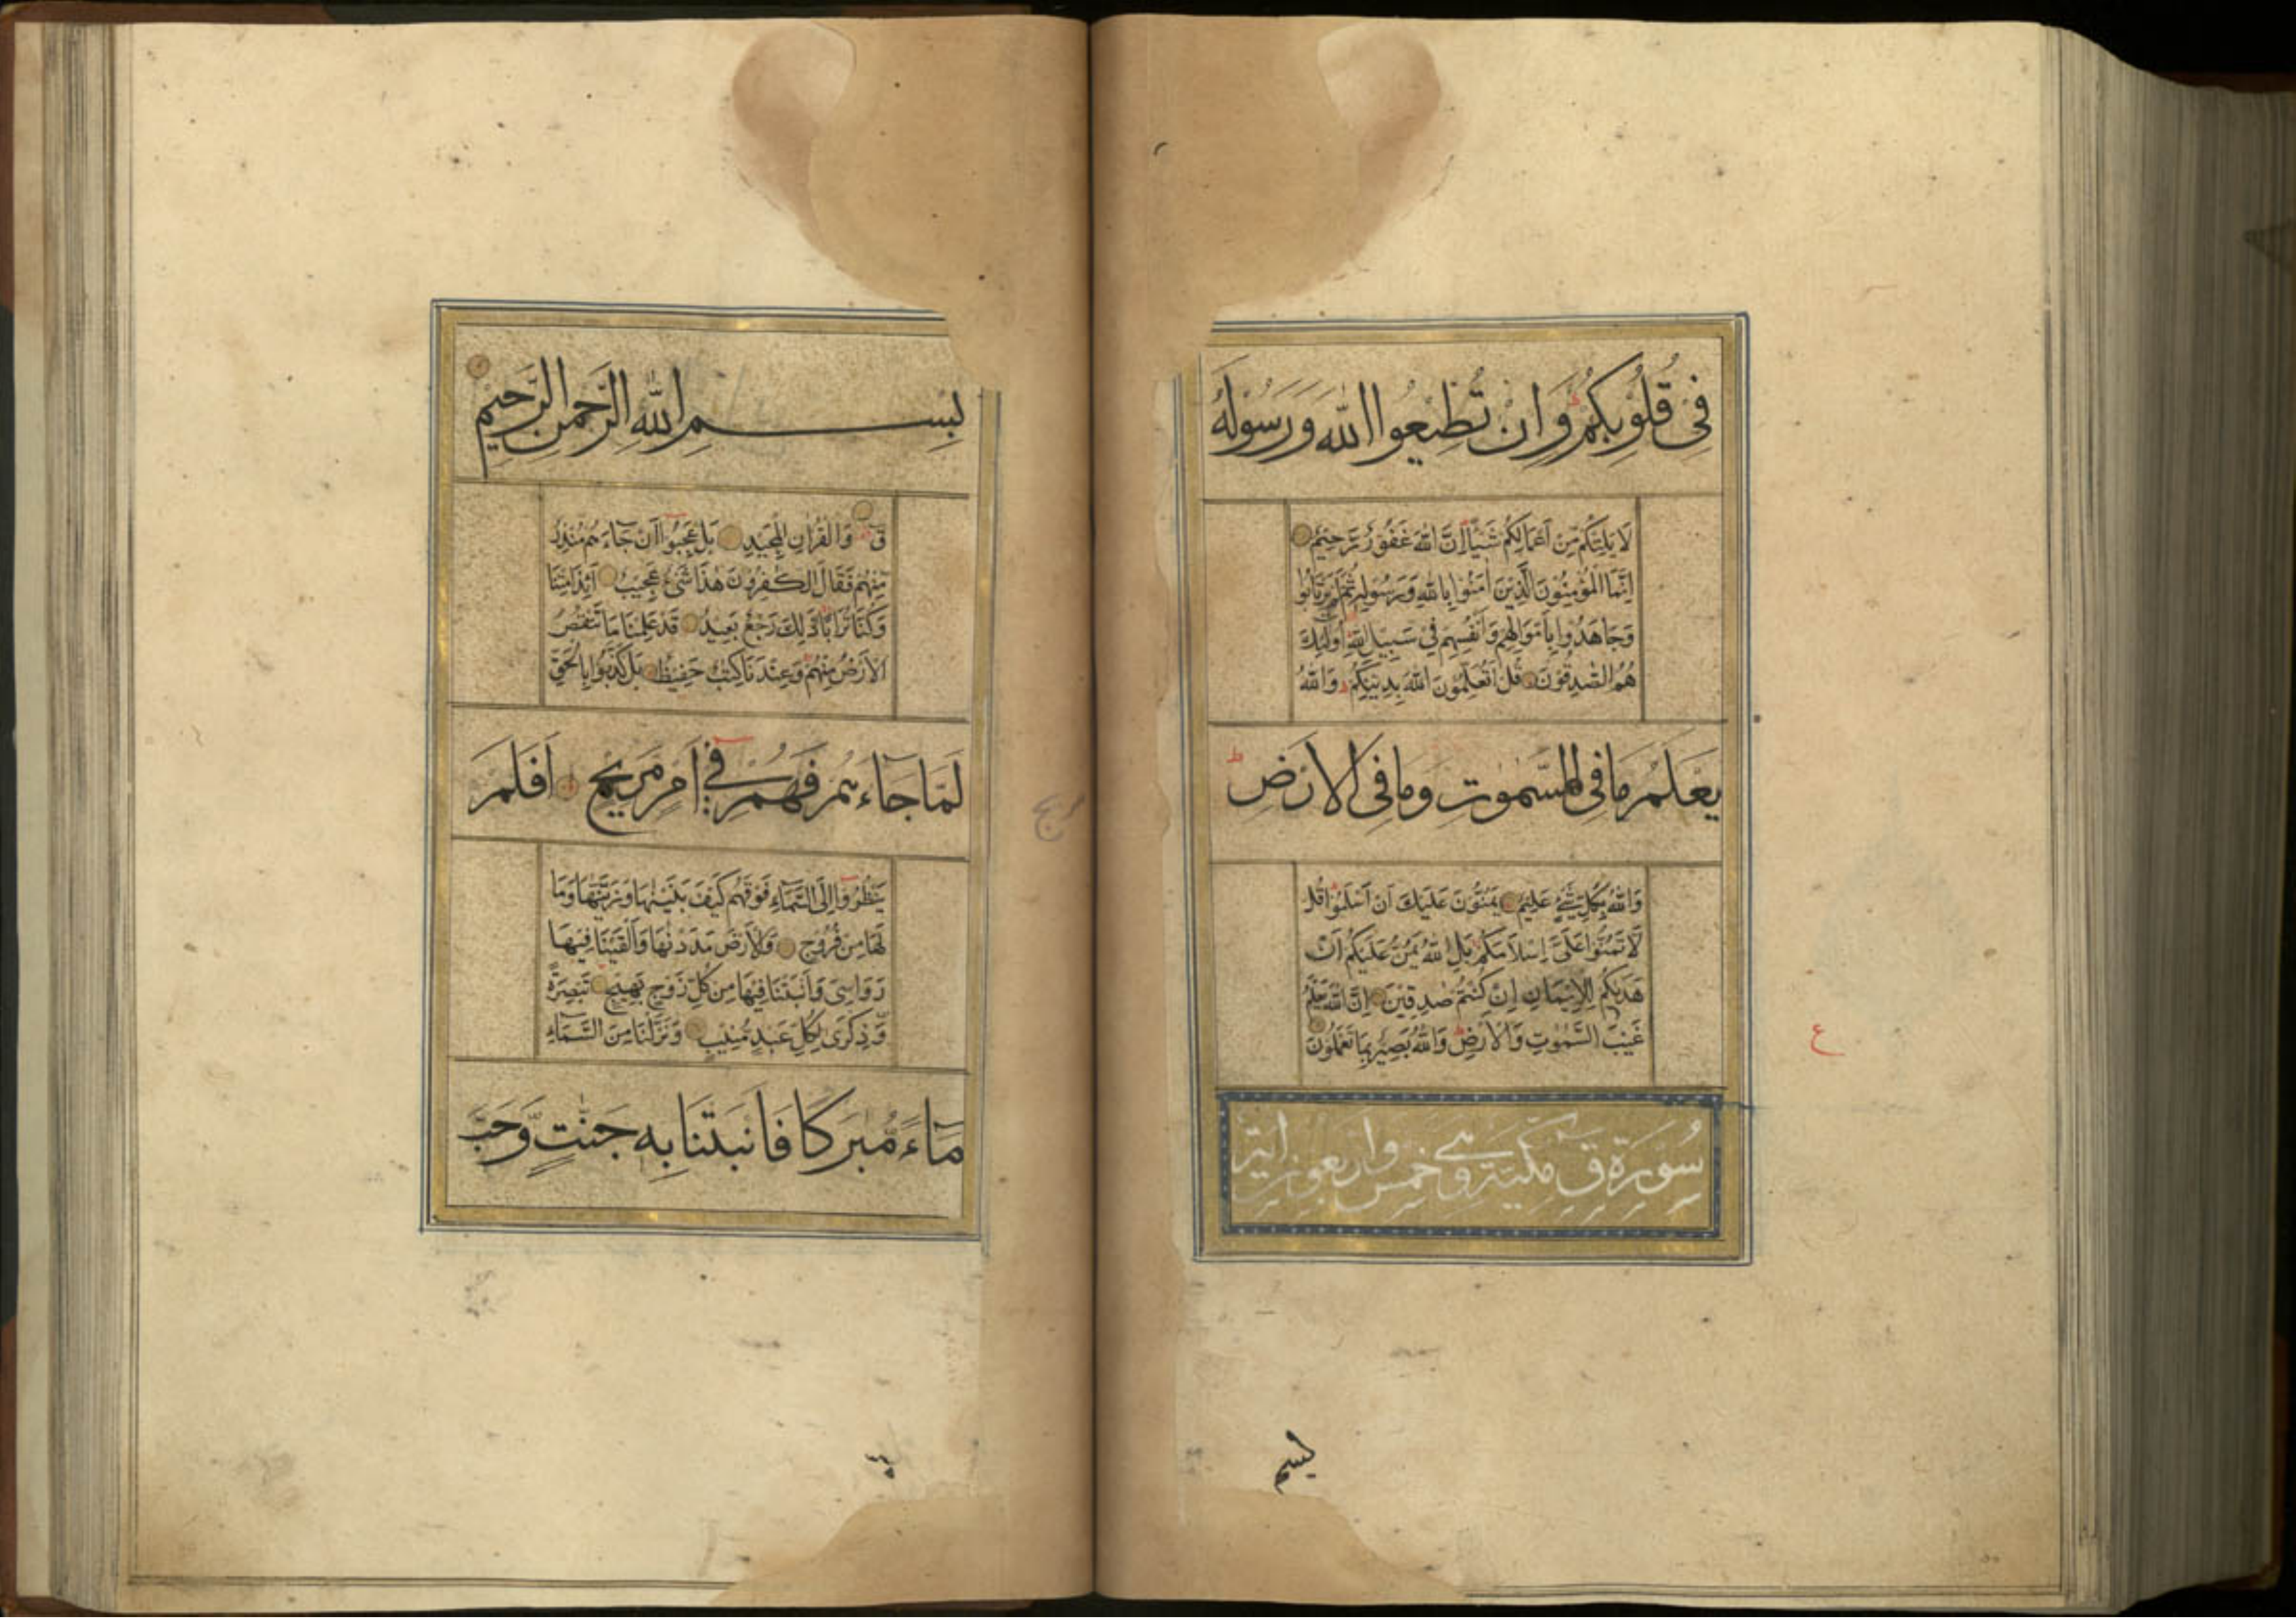 فِى قُلُوبِكُمْ وَاِنْ تُطِيعُوا اللّٰهَ وَرَسُولَهُ
لَا يَلِتْكُمْ مِنْ اَعْمَالِكُمْ شَيْأً اِنَّ اللّٰهَ غَفُوْرٌ رَّحِيْمٌ
اِنَّمَا الْمُؤْمِنُوْنَ الَّذِيْنَ اٰمَنُوْا بِاللّٰهِ وَرَسُوْلِهِ ثُمَّ لَمْ يَرْتَابُوا
وَجَاهَدُوا بِاَمْوَالِهِمْ وَاَنْفُسِهِمْ فِى سَبِيْلِ اللّٰهِ اُولٰئِكَ
هُمُ الصّٰدِقُوْنَ قُلْ اَتُعَلِّمُوْنَ اللّٰهَ بِدِيْنِكُمْ وَاللّٰهُ
يَعْلَمُ مَا فِى السَّمٰوٰتِ وَمَا فِى الْاَرْضِ
وَاللّٰهُ بِكُلِّ شَىْءٍ عَلِيْمٌ يَمُنُّوْنَ عَلَيْكَ اَنْ اَسْلَمُوْا قُلْ
لَا تَمُنُّوْا عَلَىَّ اِسْلَامَكُمْ بَلِ اللّٰهُ يَمُنُّ عَلَيْكُمْ اَنْ
هَدٰىكُمْ لِلْاِيْمَانِ اِنْ كُنْتُمْ صٰدِقِيْنَ اِنَّ اللّٰهَ يَعْلَمُ
غَيْبَ السَّمٰوٰتِ وَالْاَرْضِ وَاللّٰهُ بَصِيْرٌ بِمَا تَعْمَلُوْنَ
سُوْرَةُ قٓ مَكِّيَّةٌ وَهِىَ خَمْسٌ وَاَرْبَعُوْنَ اٰيَةً
ع
بسم
بِسْمِ اللّٰهِ الرَّحْمٰنِ الرَّحِيْمِ
قٓ وَالْقُرْاٰنِ الْمَجِيْدِ بَلْ عَجِبُوْا اَنْ جَاءَهُمْ مُنْذِرٌ
مِنْهُمْ فَقَالَ الْكٰفِرُوْنَ هٰذَا شَىْءٌ عَجِيْبٌ ءَاِذَا مِتْنَا
وَكُنَّا تُرَابًا ذٰلِكَ رَجْعٌ بَعِيْدٌ قَدْ عَلِمْنَا مَا تَنْقُصُ
الْاَرْضُ مِنْهُمْ وَعِنْدَنَا كِتٰبٌ حَفِيْظٌ بَلْ كَذَّبُوْا بِالْحَقِّ
لَمَّا جَاءَهُمْ فَهُمْ فِىٓ اَمْرٍ مَرِيْجٍ اَفَلَمْ
يَنْظُرُوْا اِلَى السَّمَاءِ فَوْقَهُمْ كَيْفَ بَنَيْنٰهَا وَزَيَّنّٰهَا وَمَا
لَهَا مِنْ فُرُوْجٍ وَالْاَرْضَ مَدَدْنٰهَا وَاَلْقَيْنَا فِيْهَا
رَوَاسِىَ وَاَنْبَتْنَا فِيْهَا مِنْ كُلِّ زَوْجٍ بَهِيْجٍ تَبْصِرَةً
وَّذِكْرٰى لِكُلِّ عَبْدٍ مُنِيْبٍ وَنَزَّلْنَا مِنَ السَّمَاءِ
مَاءً مُّبٰرَكًا فَاَنْبَتْنَا بِهِ جَنّٰتٍ وَّحَبَّ